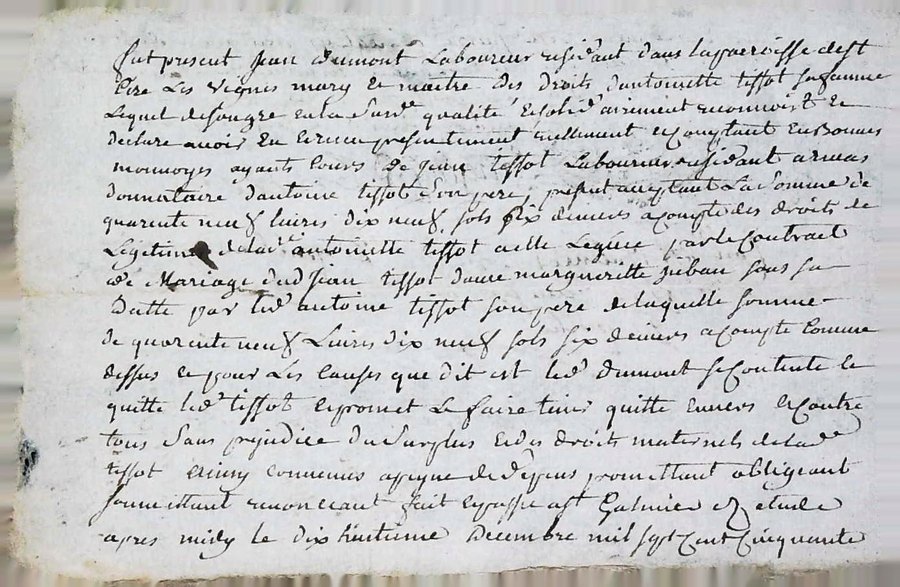 fut present jean dumont Laboureur residant dans la paroisse de st
Cire Les vignes mary et maitre des droits dantoinette tissot sa famme
Lequel de son gre en lad. qualité et solid airement reconnoist et
declare avoir eu et receu presentement reellement et comptant en bonnes
monnoyes ayants cours de jean tissot Laboureur residant a
donnataire dantoine tissot son pere, present acceptant La somme de
quarente neuf livres dix neuf sols six deniers a compte des droits de
Legitime de lad. antoinette tissot a elle Leguée par le Contract
de Mariage dud jean tissot davec margueritte sous sa
datte par led. antoine tissot son pere de laquelle somme
de quarente neuf Livres dix neuf sols six deniers a compte comme
dessus et pour Les causes que dit est led. dumont se Contente et
quitte led. tissot et promet Le faire tenir quitte envers et contre
tous sans prejudice du surplus et des droits maternels de lad.
tissot ainsy convenus a peyne de depens promettant obligeant
soumettant renonceant fait et passe a st Galmier ez etude
apres midy le dix huitieme decembre mil sept Cent Cinquante